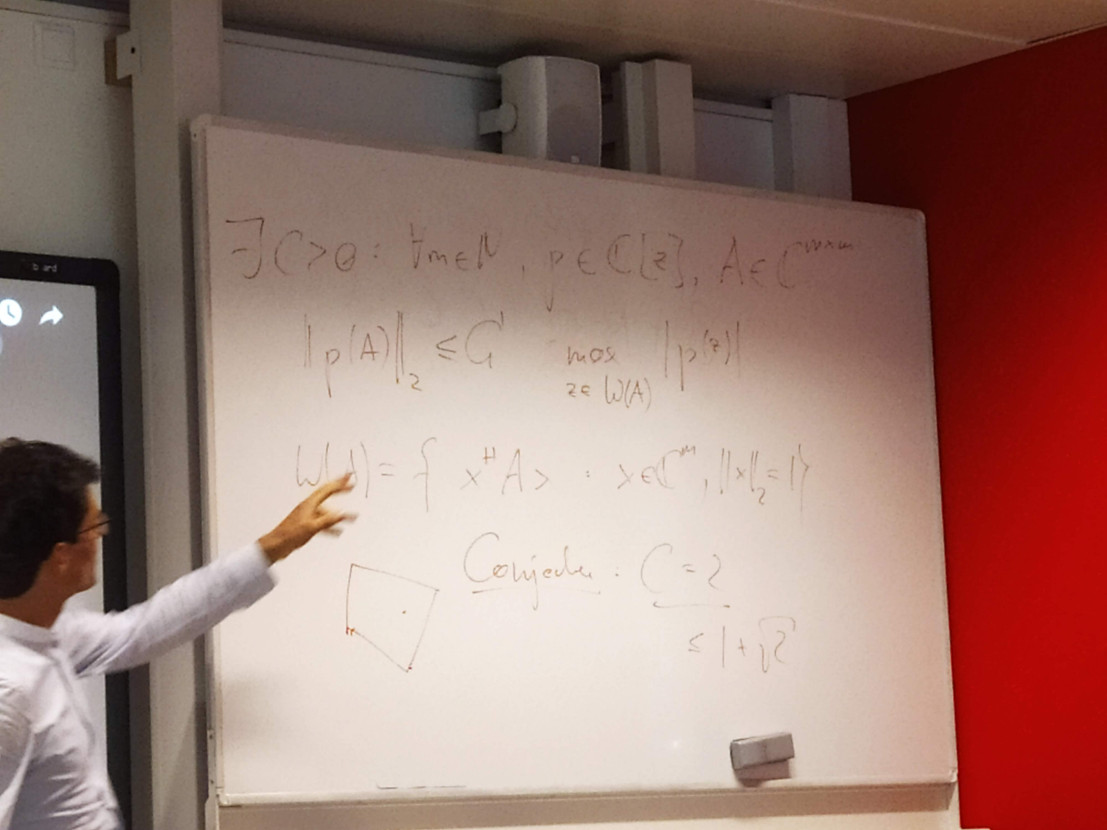 ∃ C>0 : ∀m∈ℕ, p∈ℂ[z], A∈ℂ^{m×m}
‖p(A)‖₂ ≤ C max_{z∈W(A)} |p(z)|
W(A) = { x^H A x : x∈ℂ^m, ‖x‖₂=1}
Conjecture : C = 2
≤ 1+√2